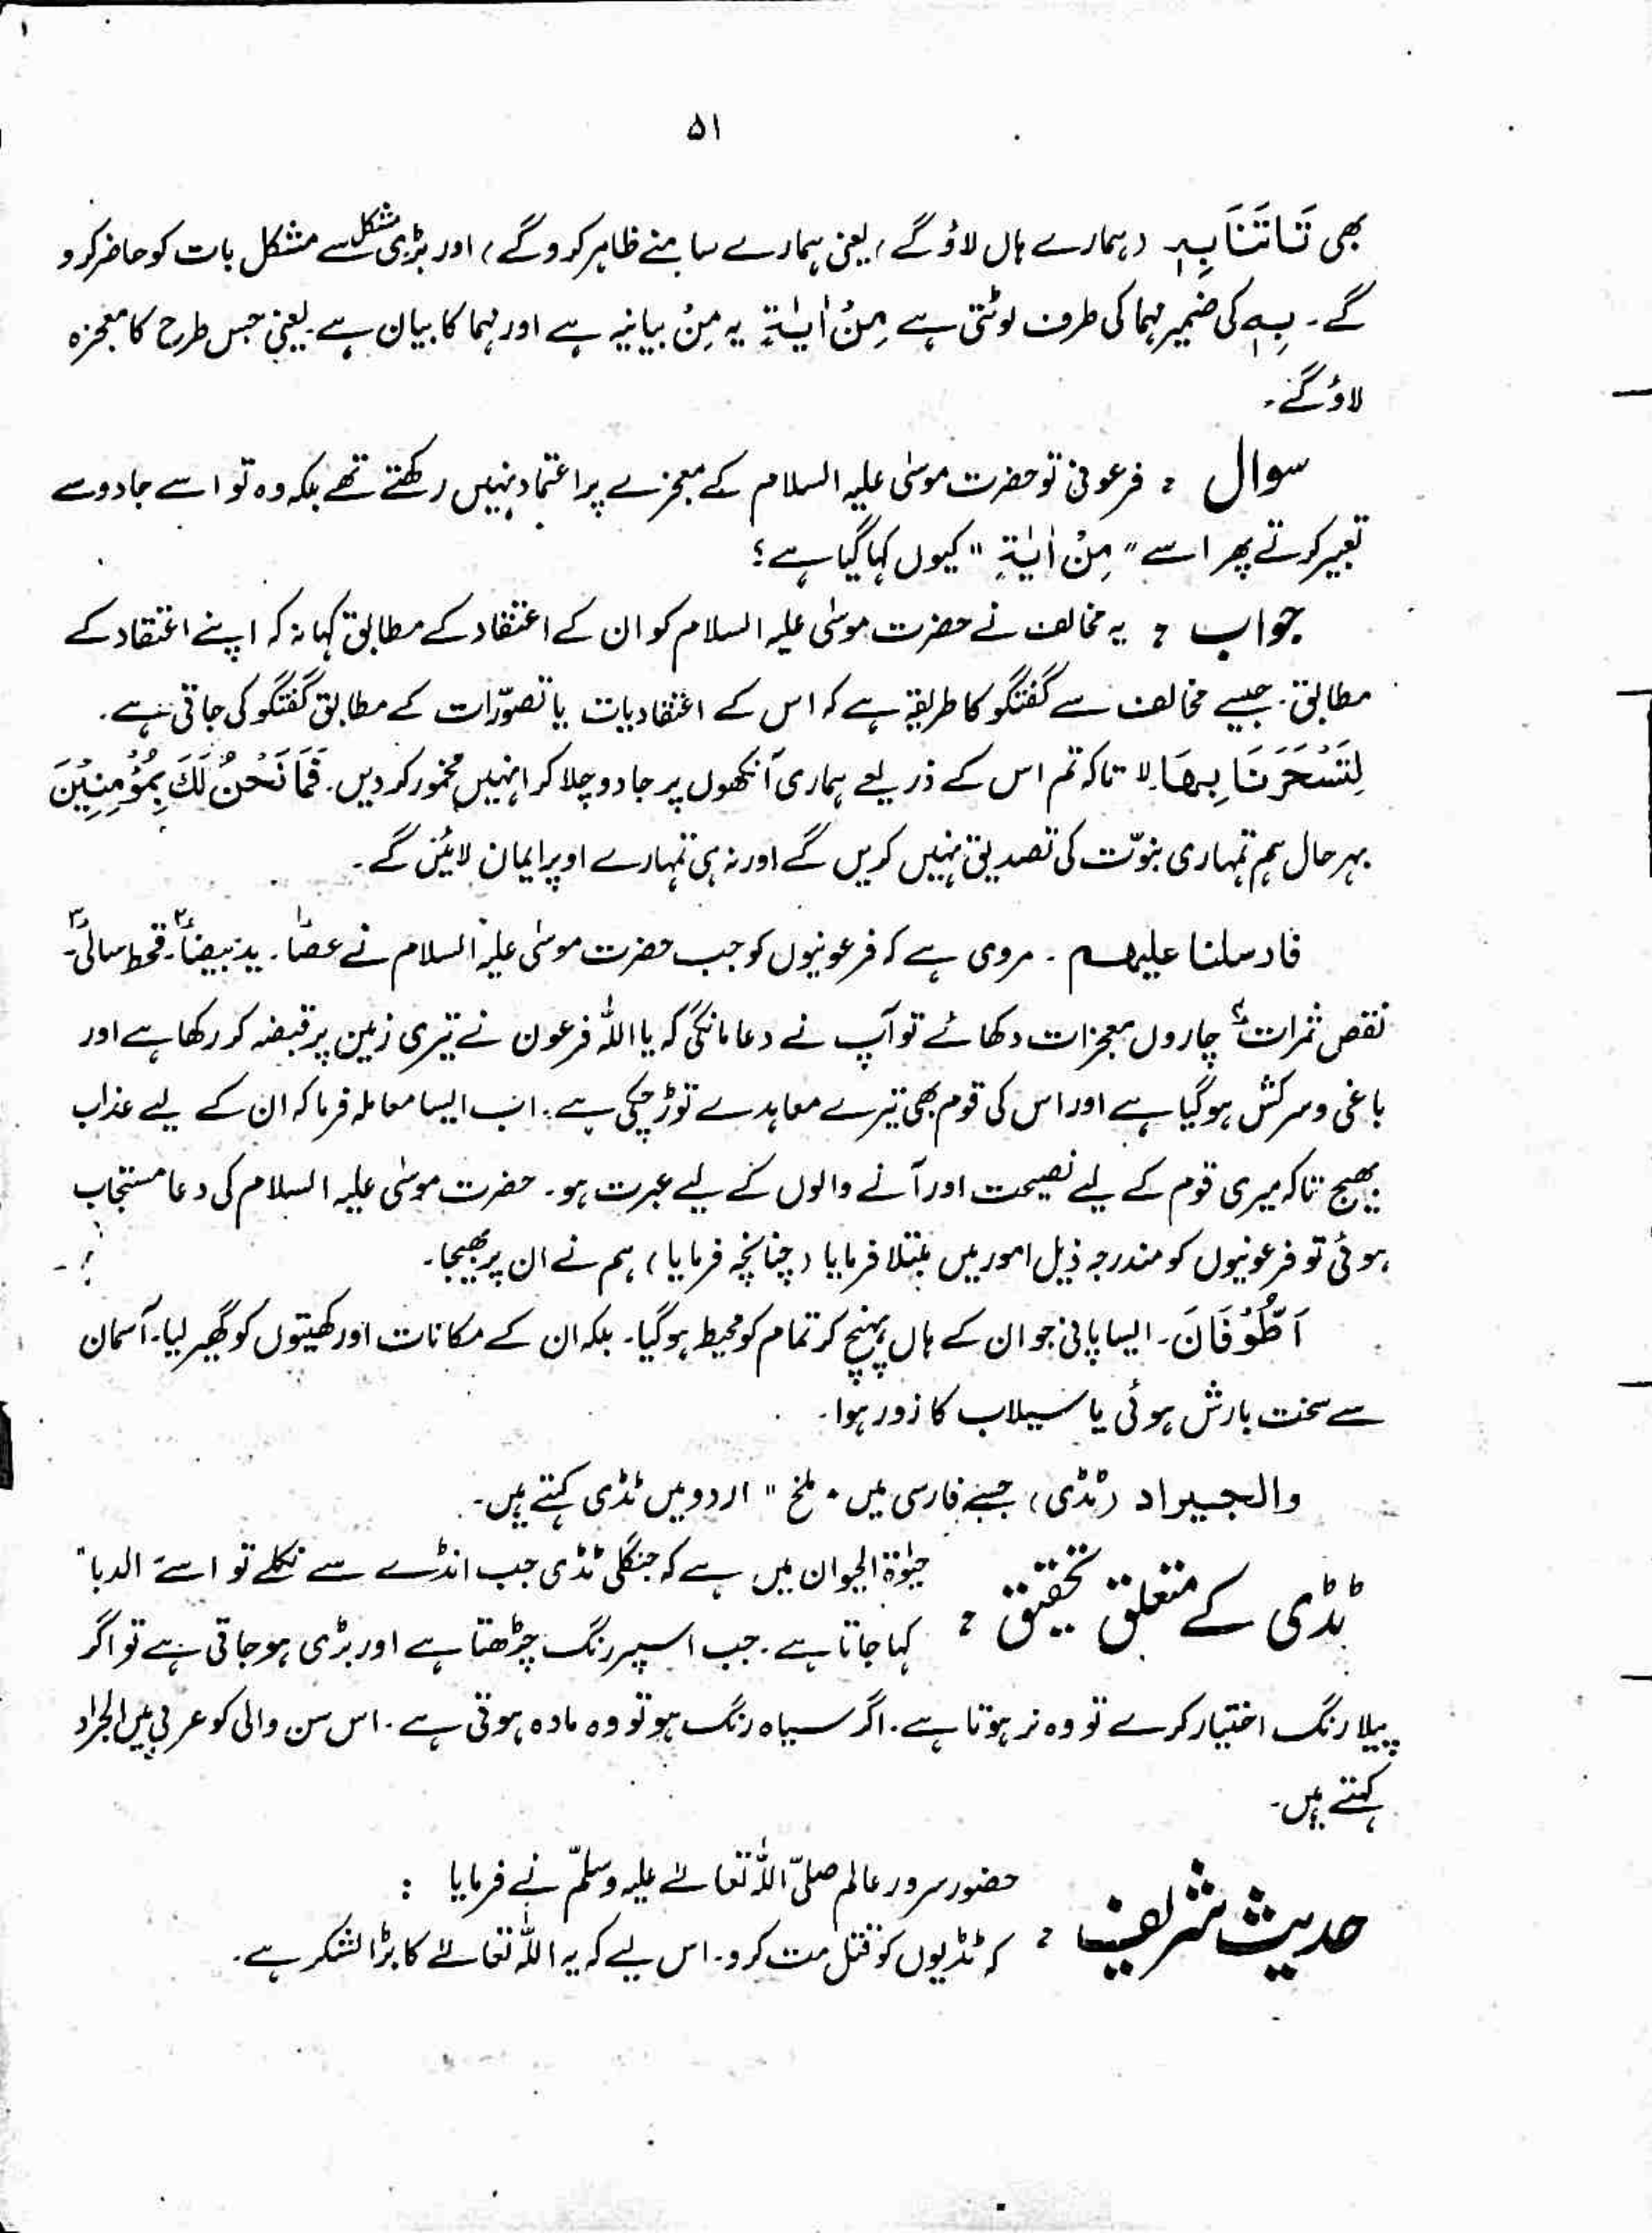 ۵۱
بھی تَاتَنَا بِہٖ (ہمارے ہاں لاؤ گے) یعنی ہمارے سامنے ظاہر کرو گے) اور بڑی مشکل سے مشکل بات کو حاضر کرو
گے۔ بِہٖ کی ضمیر مہما کی طرف لوٹتی ہے مِنْ اٰیَۃٍ یہ مِنْ بیانیہ ہے اور مہما کا بیان ہے۔ یعنی جس طرح کا معجزہ
لاؤ گے۔
سوال : فرعونی تو حضرت موسٰی علیہ السلام کے معجزے پر اعتماد نہیں رکھتے تھے بلکہ وہ تو اسے جادو سے
تعبیر کرتے پھر اسے "مِنْ اٰیَۃٍ" کیوں کہا گیا ہے؟
جواب : یہ مخالف نے حضرت موسٰی علیہ السلام کو ان کے اعتقاد کے مطابق کہا نہ کہ اپنے اعتقاد کے
مطابق۔ جیسے مخالف سے گفتگو کا طریقہ ہے کہ اس کے اعتقادیات یا تصوّرات کے مطابق گفتگو کی جاتی ہے۔
لِتَسْحَرَنَا بِهَا لا تاکہ تم اس کے ذریعے ہماری آنکھوں پر جادو چلا کر انہیں مخمور کر دیں۔ فَمَا نَحْنُ لَكَ بِمُؤْمِنِیْنَ
بہرحال ہم تمہاری نبوّت کی تصدیق نہیں کریں گے اور نہ ہی تمہارے اوپر ایمان لائیں گے۔
فارسلنا علیہم ۔ مروی ہے کہ فرعونیوں کو جب حضرت موسٰی علیہ السلام نے عصا۱۔ یدبیضا۲۔ قحط سالی۳۔
نقص ثمرات۴ چاروں معجزات دکھائے تو آپ نے دعا مانگی کہ یا اللہ فرعون نے تیری زمین پر قبضہ کر رکھا ہے اور
باغی و سرکش ہو گیا ہے اور اس کی قوم بھی تیرے معاہدے توڑ چکی ہے۔ اب ایسا معاملہ فرما کہ ان کے لیے عذاب
بھیج تاکہ میری قوم کے لیے نصیحت اور آنے والوں کے لیے عبرت ہو۔ حضرت موسٰی علیہ السلام کی دعا مستجاب
ہوئی تو فرعونیوں کو مندرجہ ذیل امور میں مبتلا فرمایا (چنانچہ فرمایا) ہم نے ان پر بھیجا۔
اَطُّوْفَانَ۔ ایسا پانی جو ان کے ہاں پہنچ کر تمام کو محیط ہو گیا۔ بلکہ ان کے مکانات اور کھیتوں کو گھیر لیا۔ آسمان
سے سخت بارش ہوئی یا سیلاب کا زور ہوا۔
والجیراد (ٹڈی) جسے فارسی میں "ملخ" اردو میں ٹڈی کہتے ہیں۔
ٹڈی کے متعلق تحقیق : حیٰوۃ الحیوان میں ہے کہ جنگلی ٹڈی جب انڈے سے نکلے تو اسے "الدبا"
کہا جاتا ہے۔ جب اس پر رنگ چڑھتا ہے اور بڑی ہو جاتی ہے تو اگر
پیلا رنگ اختیار کرے تو وہ نر ہوتا ہے۔ اگر سیاہ رنگ ہو تو وہ مادہ ہوتی ہے۔ اس سن والی کو عربی میں الجراد
کہتے ہیں۔
حدیث شریف : حضور سرور عالم صلّی اللہ تعالٰے علیہ وسلّم نے فرمایا :
کہ ٹڈیوں کو قتل مت کرو۔ اس لیے کہ یہ اللہ تعالٰے کا بڑا لشکر ہے۔